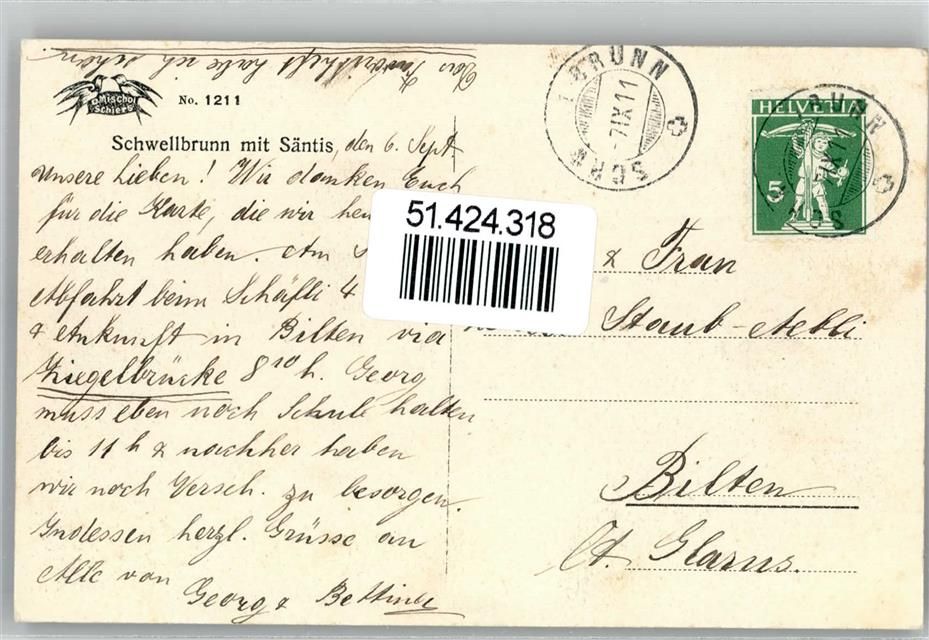 Mischol
Schiers
No. 1211
Schwellbrunn mit Säntis, den 6. Sept.
Unsere Lieben! Wir danken Euch
für die Karte, die wir
erhalten haben. Am
Abfahrt beim Schäfli 4
& Ankunft in Bilten via
Ziegelbrücke 8 10 h. Georg
muss eben noch Schule halten
bis 11 h & nachher haben
wir noch Versch. zu besorgen.
Indessen herzl. Grüsse an
Alle von
Georg & Bettina
habe ich schon
BRUNN
-7 IX 11
SCHW
HELVETIA
5
BRUNN
51.424.318
& Frau
Staub-Aebli
Bilten
Ct. Glarus.